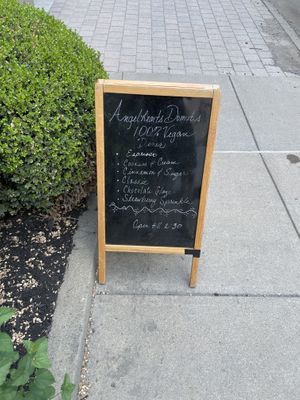 Angelhearts Donuts
100% Vegan
• Espresso
• Cookies & Cream
• Cinnamon & Sugar
• Classic
• Chocolate
• Strawberry Sprinkle
Open 'til 2:30